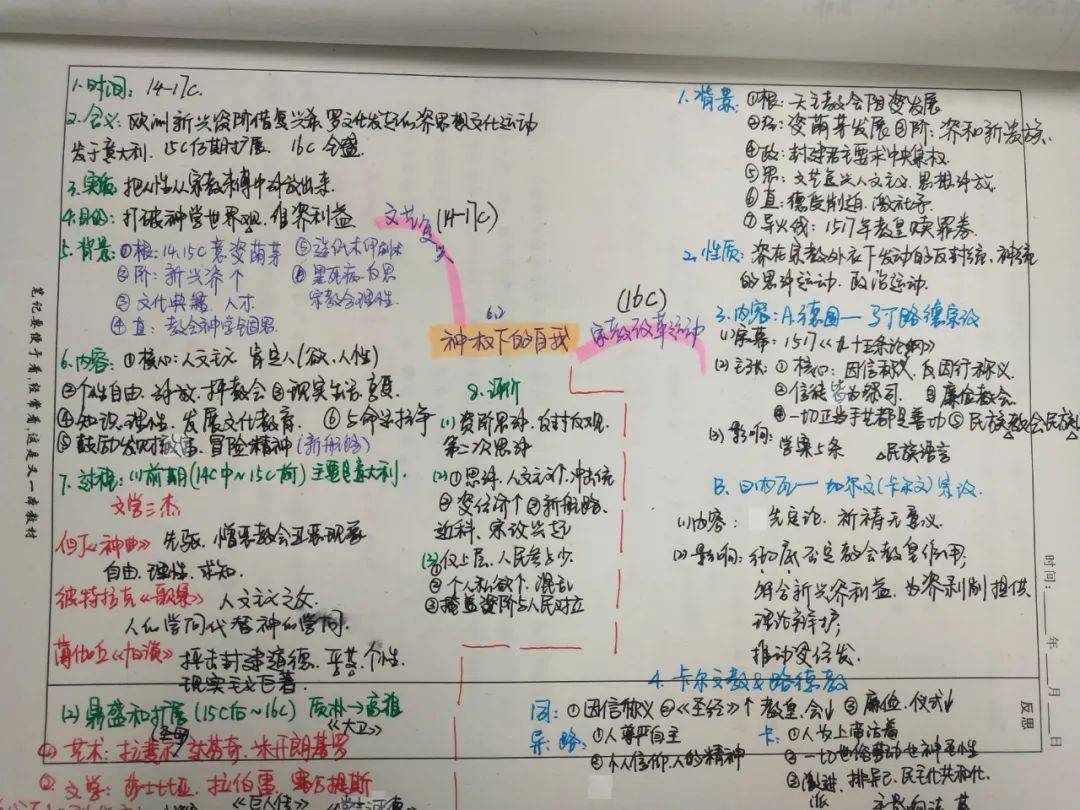 1.时间: 14-17C.
2.含义: 欧洲新兴资阶借复兴希、罗文化发起的资思想文化运动
发于意大利. 15C后期扩展. 16C全盛
3.实质: 把人性从宗教束缚中解放出来.
4.目的: 打破神学世界观, 维资利益
5.背景: ①根: 14.15C意资萌芽 ⑤造纸术印刷术
②阶: 新兴资个 ⑥黑死病
③文化典籍. 人才. 宗教合理性.
④直: 教会神学
6.内容: ①核心: 人文主义 肯定人(欲.人性)
②个性自由. 解放. 抨教会 ③现实生活
④知识. 理性. 发展文化教育. ⑥与命运抗争
⑤鼓励发财致富. 冒险精神 (新航路)
7.过程: (1)前期(14C中~15C前) 主要是意大利.
文学三杰.
但丁《神曲》 先驱. 憎恶教会丑恶现象
自由. 理性. 求知.
彼特拉克《歌集》 人文主义之父.
人的学问代替神的学问.
薄伽丘《十日谈》 抨击封建道德. 平等. 个性.
现实主义巨著.
(2)鼎盛和扩展(15C后~16C) 质朴→高雅
《大卫》
①艺术: 拉斐尔 达芬奇. 米开朗基罗
②文学: 莎士比亚. 拉伯雷. 塞万提斯
《巨人传》
文艺复兴 (14-17C)
6.2
神权下的自我
(16C)
宗教改革运动
8.评价
(1)资阶思解. 反封反观.
第二次思解
(2)①思解. 人文主义个. 冲击统
②资经济个 ③新航路.
近科. 宗改兴起
(3)①仅上层. 人民参与少.
②个人私欲个. 混乱
③掩盖资阶与人民对立
1.背景: ①根: 天主教会阻资发展
②经: 资萌芽发展 ③阶: 资和新贵族.
④政: 封建君主要求中央集权.
⑤思: 文艺复兴人文主义. 思想解放.
⑥直: 德
⑦导火线: 1517年教皇赎罪券.
2.性质: 资在宗教外衣下发动的反封统. 神统
的思解运动. 政治运动.
3.内容: A.德国— 马丁路德宗改
(1)序幕: 1517《九十五条论纲》
(2)主张: ①核心: 因信称义, 反因行称义.
②信徒皆为祭司. ③廉俭教会.
④一切正当手世都是善功 ⑤民族教会民族
(3)影响: 学案5条 △民族语言
B.日内瓦— 加尔文(卡尔文)宗改.
(1)内容: 先定论. 祈祷无意义.
(2)影响: 彻底否定教会教皇作用;
符合新兴资利益. 为资剥削提供
理论辩护;
推动资经发.
4.卡尔文教&路德教
同: ①因信称义 ②《圣经》↑ 教皇.会↓ ③廉俭. 仪式↓
异: 路: ①人尊严自主 卡: ①人为上帝活着
②个人信仰. 人的精神 ②一切世俗劳动也神圣性
③激进. 排异己. 民主化共和化.
派
笔记要便于看,经常看,这是又一本教材
时间:____年__月__日
反思